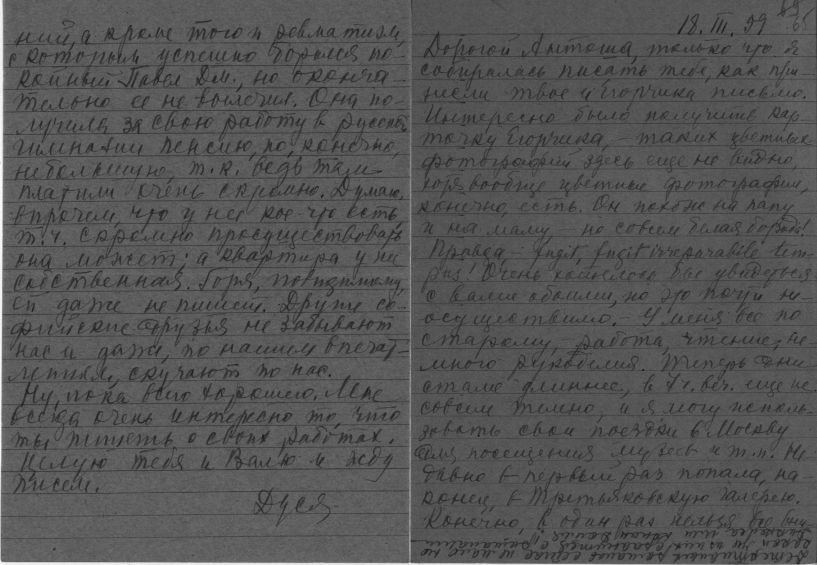 ний, а кроме того и ревматизм,
с которым успешно боролся по-
койный Павел Дм., но оконча-
тельно ее не вылечил. Она по-
лучила за свою работу в русской
гимназии пенсию, но, конечно,
небольшую, т.к. ведь там
платили очень скромно. Думаю,
впрочем, что у нее кое-что есть
т.ч. скромно просуществовать
она может; а квартира у ней
собственная. Горя, повидимому,
ей даже не пишет. Другие со-
фийские друзья не забывают
нас и даже, по нашим впечат-
лениям, скучают по нас.
Ну, пока всего хорошего. Мне
всегда очень интересно то, что
ты пишешь о своих работах.
Целую тебя и Валю и жду
писем.
Дуся
18.III.59
Дорогой Антоша, только что я
собиралась писать тебе, как при-
несли твое и Егорчика письмо.
Интересно было получить кар-
точку Егорчика, – таких цветных
фотографий здесь еще не видно,
хотя вообще цветные фотографии,
конечно, есть. Он похож на папу
и на маму – но совсем белая борода!
Правда – fugit, fugit irreparabile tem-
pus! Очень хотелось бы увидеться
с вами обоими, но это почти не-
осуществимо. – У меня все по
старому, – работа, чтение, не-
много рукоделия. Теперь дни
стали длиннее, в 7 ч. веч. еще не
совсем темно, и я могу исполь-
зовать свои поездки в Москву
для посещения музеев и т.п. Не-
давно в первый раз попала, на-
конец, в Третьяковскую галерею.
Конечно, в один раз нельзя все